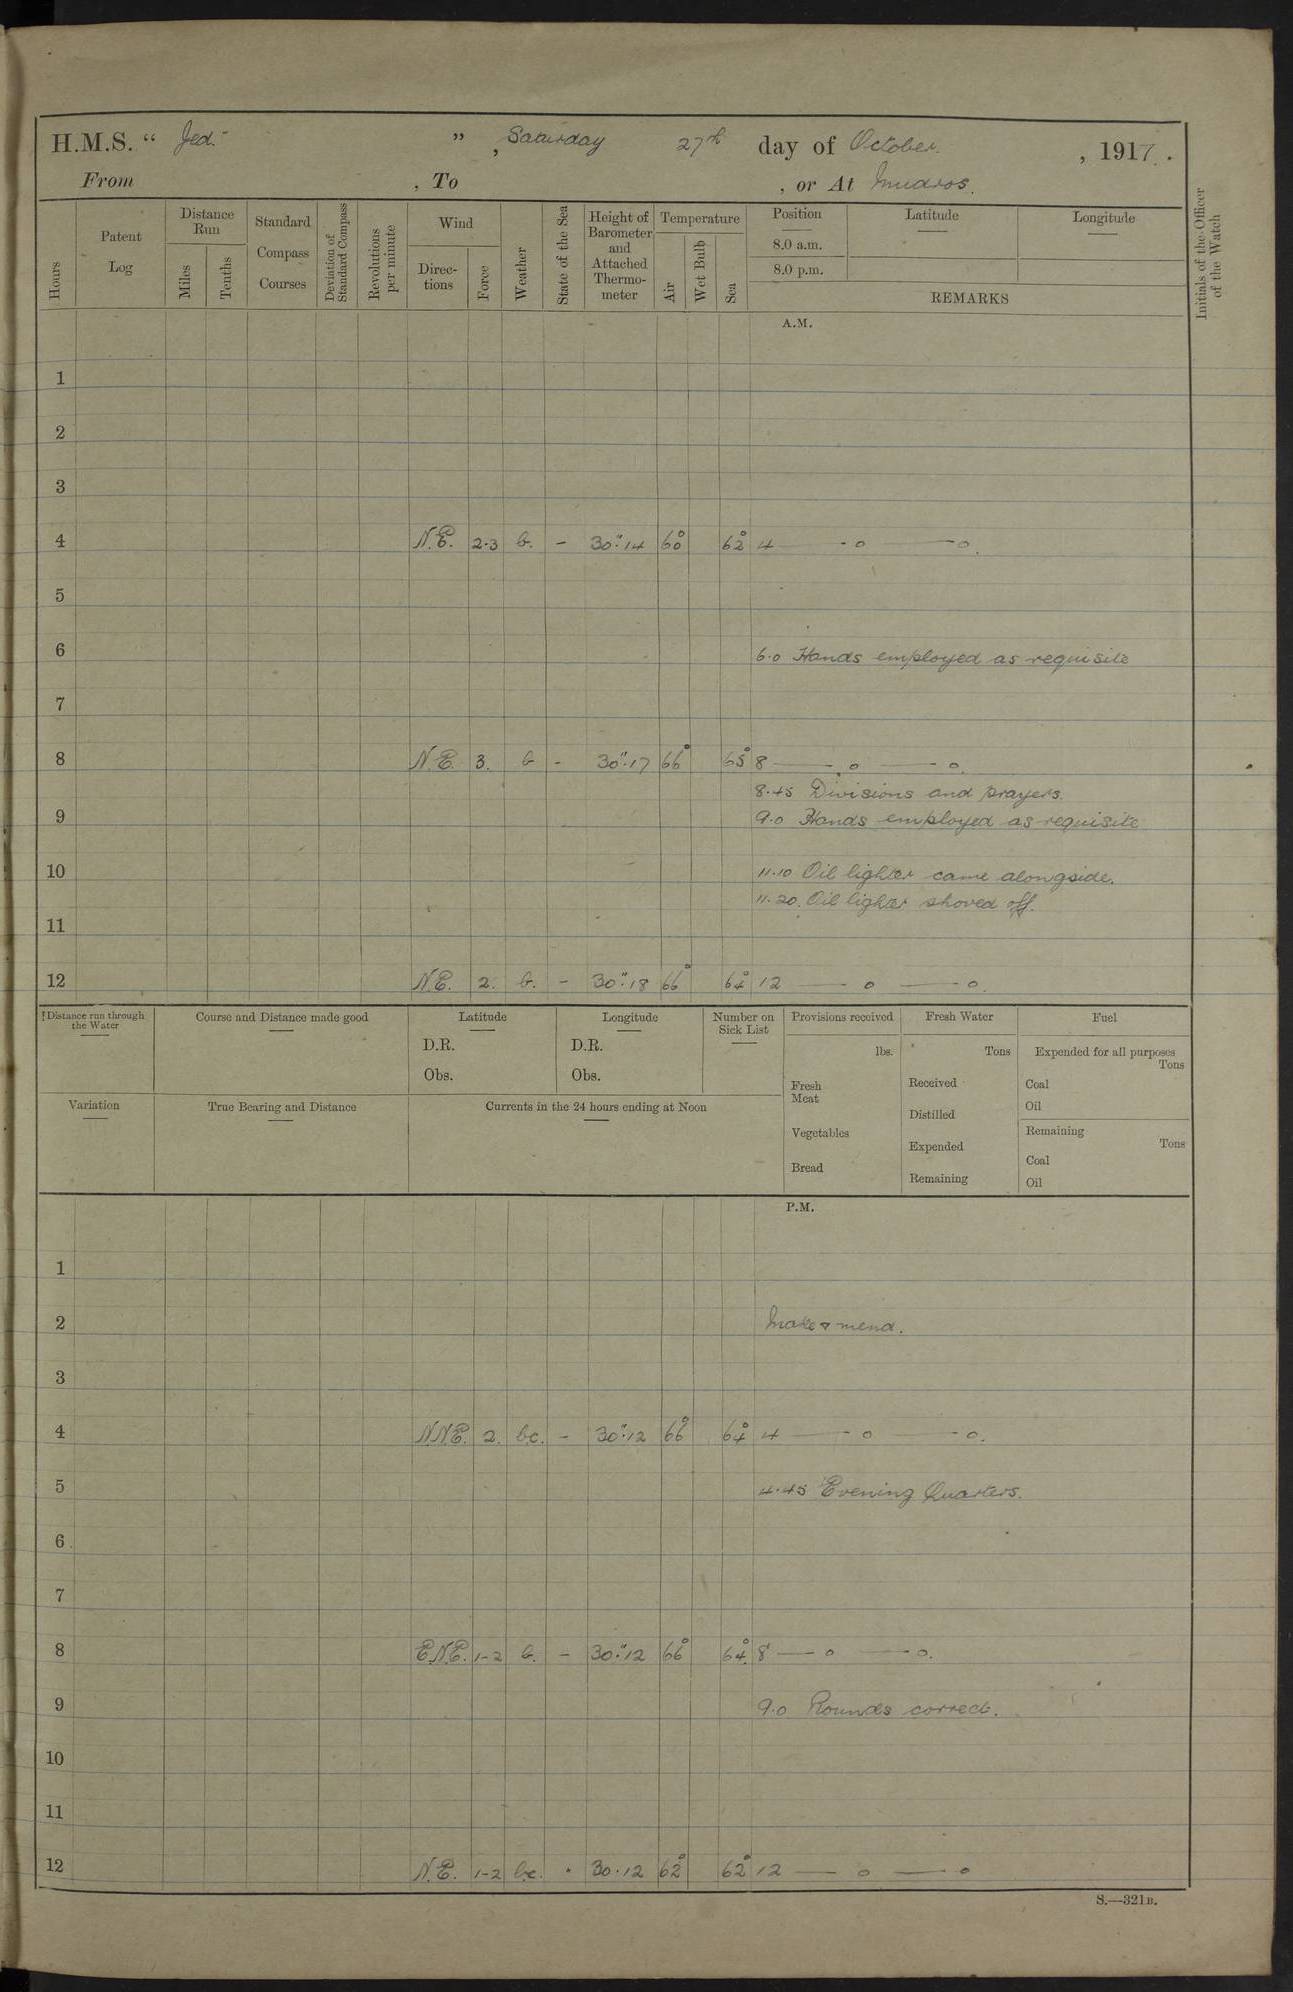 H.M.S. " Jed. " , Saturday 27th day of October. , 1917.
From , To , or At Mudros.
Hours
Patent Log
Distance Run
Miles
Tenths
Standard Compass Courses
Deviation of Standard Compass
Revolutions per minute
Wind
Direc-tions
Force
Weather
State of the Sea
Height of Barometer and Attached Thermo-meter
Temperature
Air
Wet Bulb
Sea
Position
8.0 a.m.
8.0 p.m.
Latitude
Longitude
REMARKS
Initials of the Officer of the Watch
A.M.
1
2
3
4 N.E. 2-3 b. - 30".14 60° 62° 4 —— o —— o.
5
6 6.0 Hands employed as requisite
7
8 N.E. 3. b - 30".17 66° 65° 8 —— o —— o.
8.45 Divisions and prayers.
9 9.0 Hands employed as requisite
10 11.10 Oil lighter came alongside.
11.20. Oil lighter shoved off.
11
12 N.E. 2. b. - 30".18 66° 64° 12 —— o —— o.
Distance run through the Water
Course and Distance made good
Latitude
D.R.
Obs.
Longitude
D.R.
Obs.
Number on Sick List
Provisions received
lbs.
Fresh Meat
Vegetables
Bread
Fresh Water
Tons
Received
Distilled
Expended
Remaining
Fuel
Expended for all purposes
Tons
Coal
Oil
Remaining
Tons
Coal
Oil
Variation
True Bearing and Distance
Currents in the 24 hours ending at Noon
P.M.
1
2 Make & mend.
3
4 N.N.E. 2. bc. - 30".12 66° 64° 4 —— o —— o.
5 4.45 Evening Quarters.
6
7
8 E.N.E. 1-2 b. - 30".12 66° 64° 8 —— o —— o.
9 9.0 Rounds correct.
10
11
12 N.E. 1-2 bc. · 30.12 62° 62° 12 —— o —— o
S.—321B.